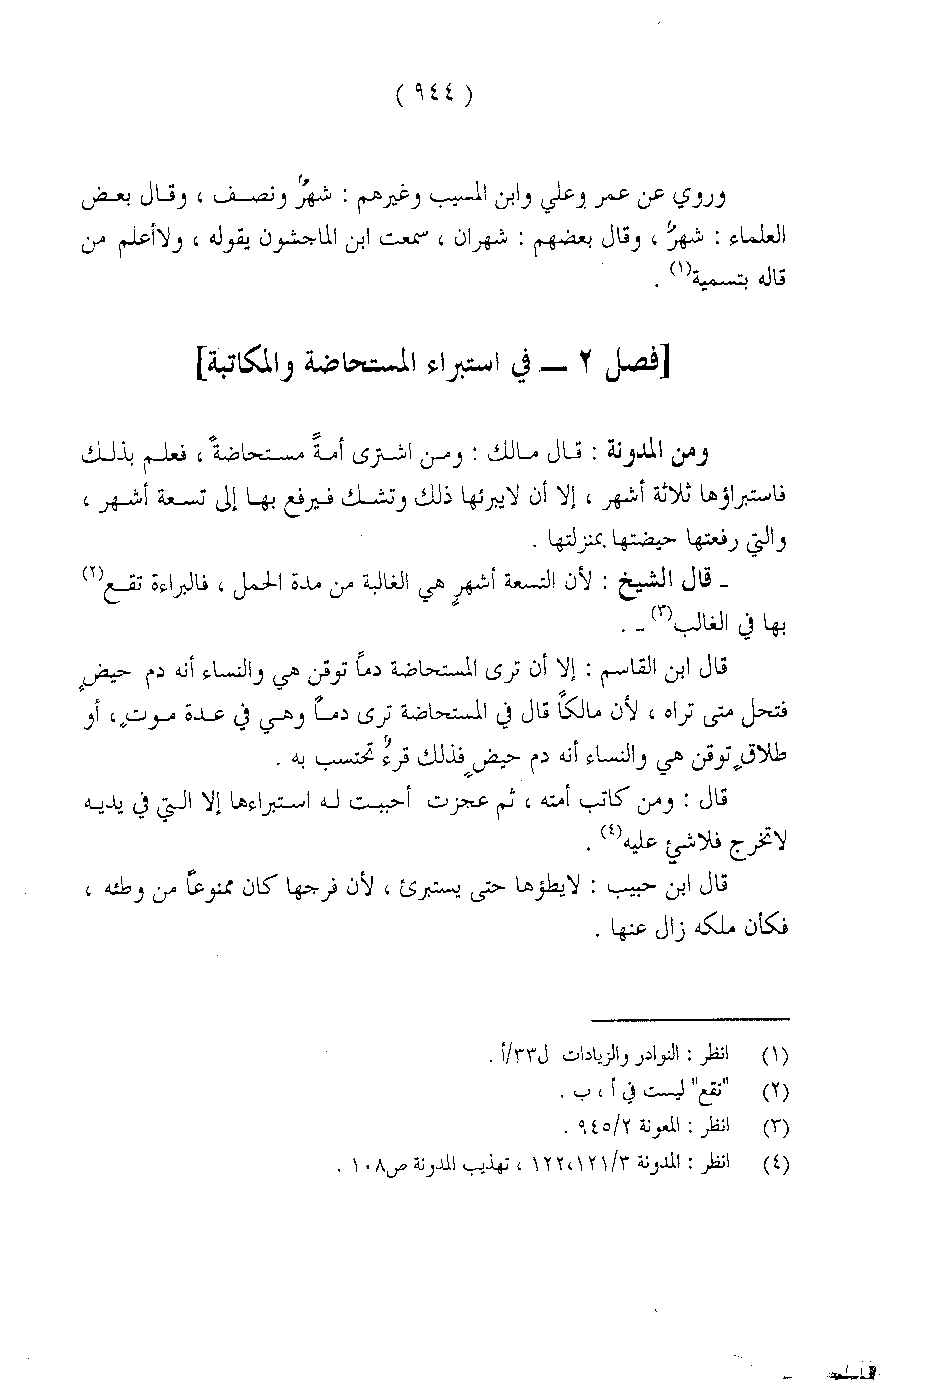 ( ٩٤٤ )
وروي عن عمر وعلي وابن المسيب وغيرهم : شهرٌ ونصـف ، وقـال بعـض
العلماء : شهرٌ ، وقال بعضهم : شهران ، سمعت ابن الماجشون يقوله ، ولاأعلم من
قاله بتسمية(١) .
[فصل ٢ ــ في استبراء المستحاضة والمكاتبة]
ومن المدونة : قـال مـالك : ومـن اشـترى أمـةً مسـتحاضةً ، فعلـم بذلـك
فاستبراؤها ثلاثة أشهر ، إلا أن لايبرئها ذلك وتشـك فـيرفع بهـا إلى تسـعة أشـهر ،
والتي رفعتها حيضتها بمنزلتها .
ـ قال الشيخ : لأن التسعة أشهرٍ هي الغالبة من مدة الحمل ، فالبراءة تقـع(٢)
بها في الغالب(٣) ـ .
قال ابن القاسم : إلا أن ترى المستحاضة دماً توقن هي والنساء أنه دم حيضٍ
فتحل متى تراه ، لأن مالكاً قال في المستحاضة ترى دمـاً وهـي في عـدة مـوتٍ، أو
طلاقٍ توقن هي والنساء أنه دم حيضٍ فذلك قرءٌ تحتسب به .
قال : ومن كاتب أمته ، ثم عجزت أحببـت لـه استـبراءها إلا الـتي في يديـه
لاتخرج فلاشيء عليه(٤) .
قال ابن حبيب : لايطؤها حتى يستبرئ ، لأن فرجها كان ممنوعاً من وطئه ،
فكأن ملكه زال عنها .
(١) انظر : النوادر والزيادات ل٣٣/أ .
(٢) "تقع" ليست في أ ، ب .
(٣) انظر : المعونة ٩٤٥/٢ .
(٤) انظر : المدونة ١٢٢،١٢١/٣ ، تهذيب المدونة ص١٠٨ .